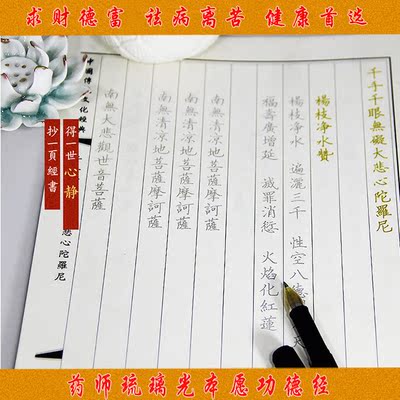 求财德富 祛病离苦 健康首选
千手千眼無礙大悲心陀羅尼
楊枝净水贊
楊枝净水 遍灑三千 性空八德
福壽廣增延 滅罪消愆 火焰化紅蓮
南無清凉地菩薩摩訶薩
南無清凉地菩薩摩訶薩
南無清凉地菩薩摩訶薩
南無大悲觀世音菩薩
得一世心静
抄一頁經書
悲心陀羅尼
药师琉璃光本愿功德经